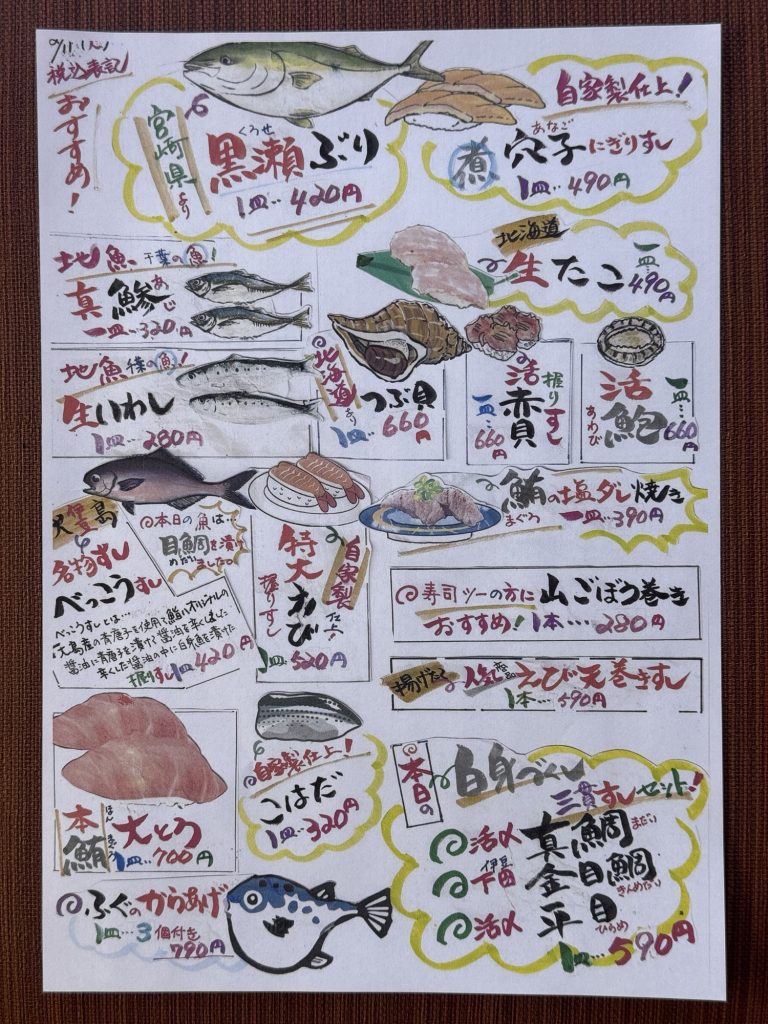 税込表記
おすすめ!
宮崎県より
くろせ
黒瀬ぶり
1皿‥420円
自家製仕上!
あなご
煮穴子にぎりすし
1皿‥490円
地魚千葉の魚!
真鯵あじ
一皿‥320円
北海道
生たこ
一皿490円
地魚千葉の魚!
生いわし
1皿‥280円
北海道より
つぶ貝
1皿‥660円
握りすし
活赤貝
一皿‥660円
活鮑
あわび
一皿‥660円
伊豆大島
名物すし
べっこうすし
べっこうすしとは…
大島産の青唐子を使用して鮨八オリジナルの
醤油に青唐子を漬け醤油を辛くしました
辛くした醤油の中に白身魚を漬けた
握りすし1皿420円
本日の魚は…
目鯛を漬け
めだい
ました。
自家製仕上!
特大えび
握りすし
1皿‥520円
鮪の塩ダレ焼き
まぐろ
一皿‥390円
寿司ツーの方に山ごぼう巻き
おすすめ!1本‥‥280円
揚げたて人気商品えび天巻きすし
1本‥590円
本鮪大とろ
ほんまぐろ
1皿‥700円
自家製仕上!
こはだ
1皿‥320円
本日の白身づくし
三貫すしセット!
活〆真鯛まだい
伊豆下田金目鯛きんめだい
活〆平目ひらめ
1皿‥590円
ふぐのからあげ
1皿‥3個付き
790円